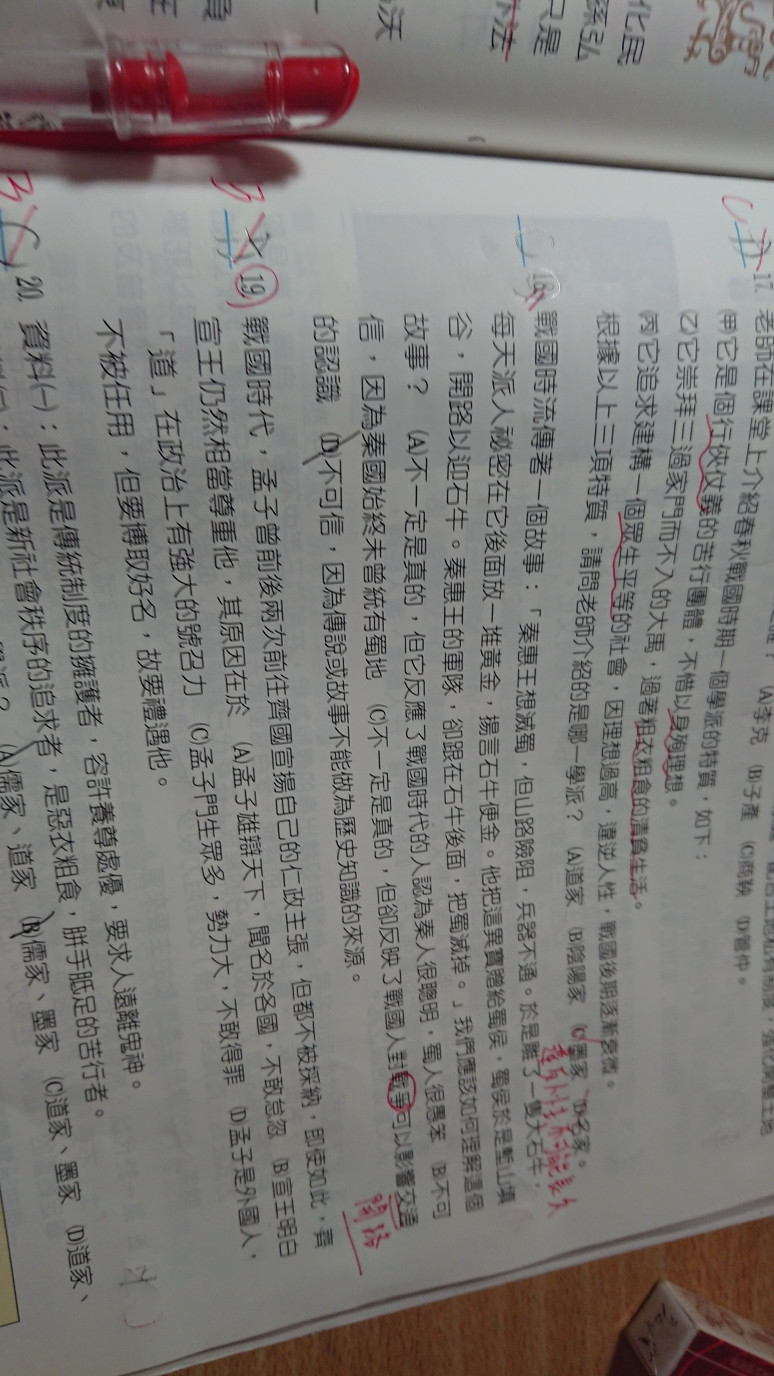 化民
只是
沃
(A)李克 (B)子產 (C)商鞅 (D)管仲。
17. 老師在課堂上介紹春秋戰國時期一個學派的特質,如下:
(甲)它是個行俠仗義的苦行團體,不惜以身殉理想。
(乙)它崇拜三過家門而不入的大禹,過著粗衣粗食的清貧生活。
(丙)它追求建構一個眾生平等的社會,因理想過高,違逆人性,戰國後期逐漸衰微。
根據以上三項特質,請問老師介紹的是哪一學派? (A)道家 (B)陰陽家 (C)墨家 (D)名家。
18. 戰國時流傳著一個故事:「秦惠王想滅蜀,但山路險阻,兵器不通。於是雕了一隻大石牛,
每天派人祕密在它後面放一堆黃金,揚言石牛便金。他把這異寶贈給蜀侯,蜀侯於是塹山填
谷,開路以迎石牛。秦惠王的軍隊,卻跟在石牛後面,把蜀滅掉。」我們應該如何理解這個
故事? (A)不一定是真的,但它反應了戰國時代的人認為秦人很聰明,蜀人很愚笨 (B)不可
信,因為秦國始終未曾統有蜀地 (C)不一定是真的,但卻反映了戰國人對戰爭可以影響交通
開路
的認識 (D)不可信,因為傳說或故事不能做為歷史知識的來源。
B 19. 戰國時代,孟子曾前後兩次前往齊國宣揚自己的仁政主張,但都不被採納,即使如此,齊
宣王仍然相當尊重他,其原因在於 (A)孟子雄辯天下,聞名於各國,不敢怠忽 (B)宣王明白
「道」在政治上有強大的號召力 (C)孟子門生眾多,勢力大,不敢得罪 (D)孟子是外國人,
不被任用,但要博取好名,故要禮遇他。
B 20. 資料(一):此派是傳統制度的擁護者,容許養尊處優,要求人遠離鬼神。
:此派是新社會秩序的追求者,是惡衣粗食,胼手胝足的苦行者。
(A)儒家、道家 (B)儒家、墨家 (C)道家、墨家 (D)道家、